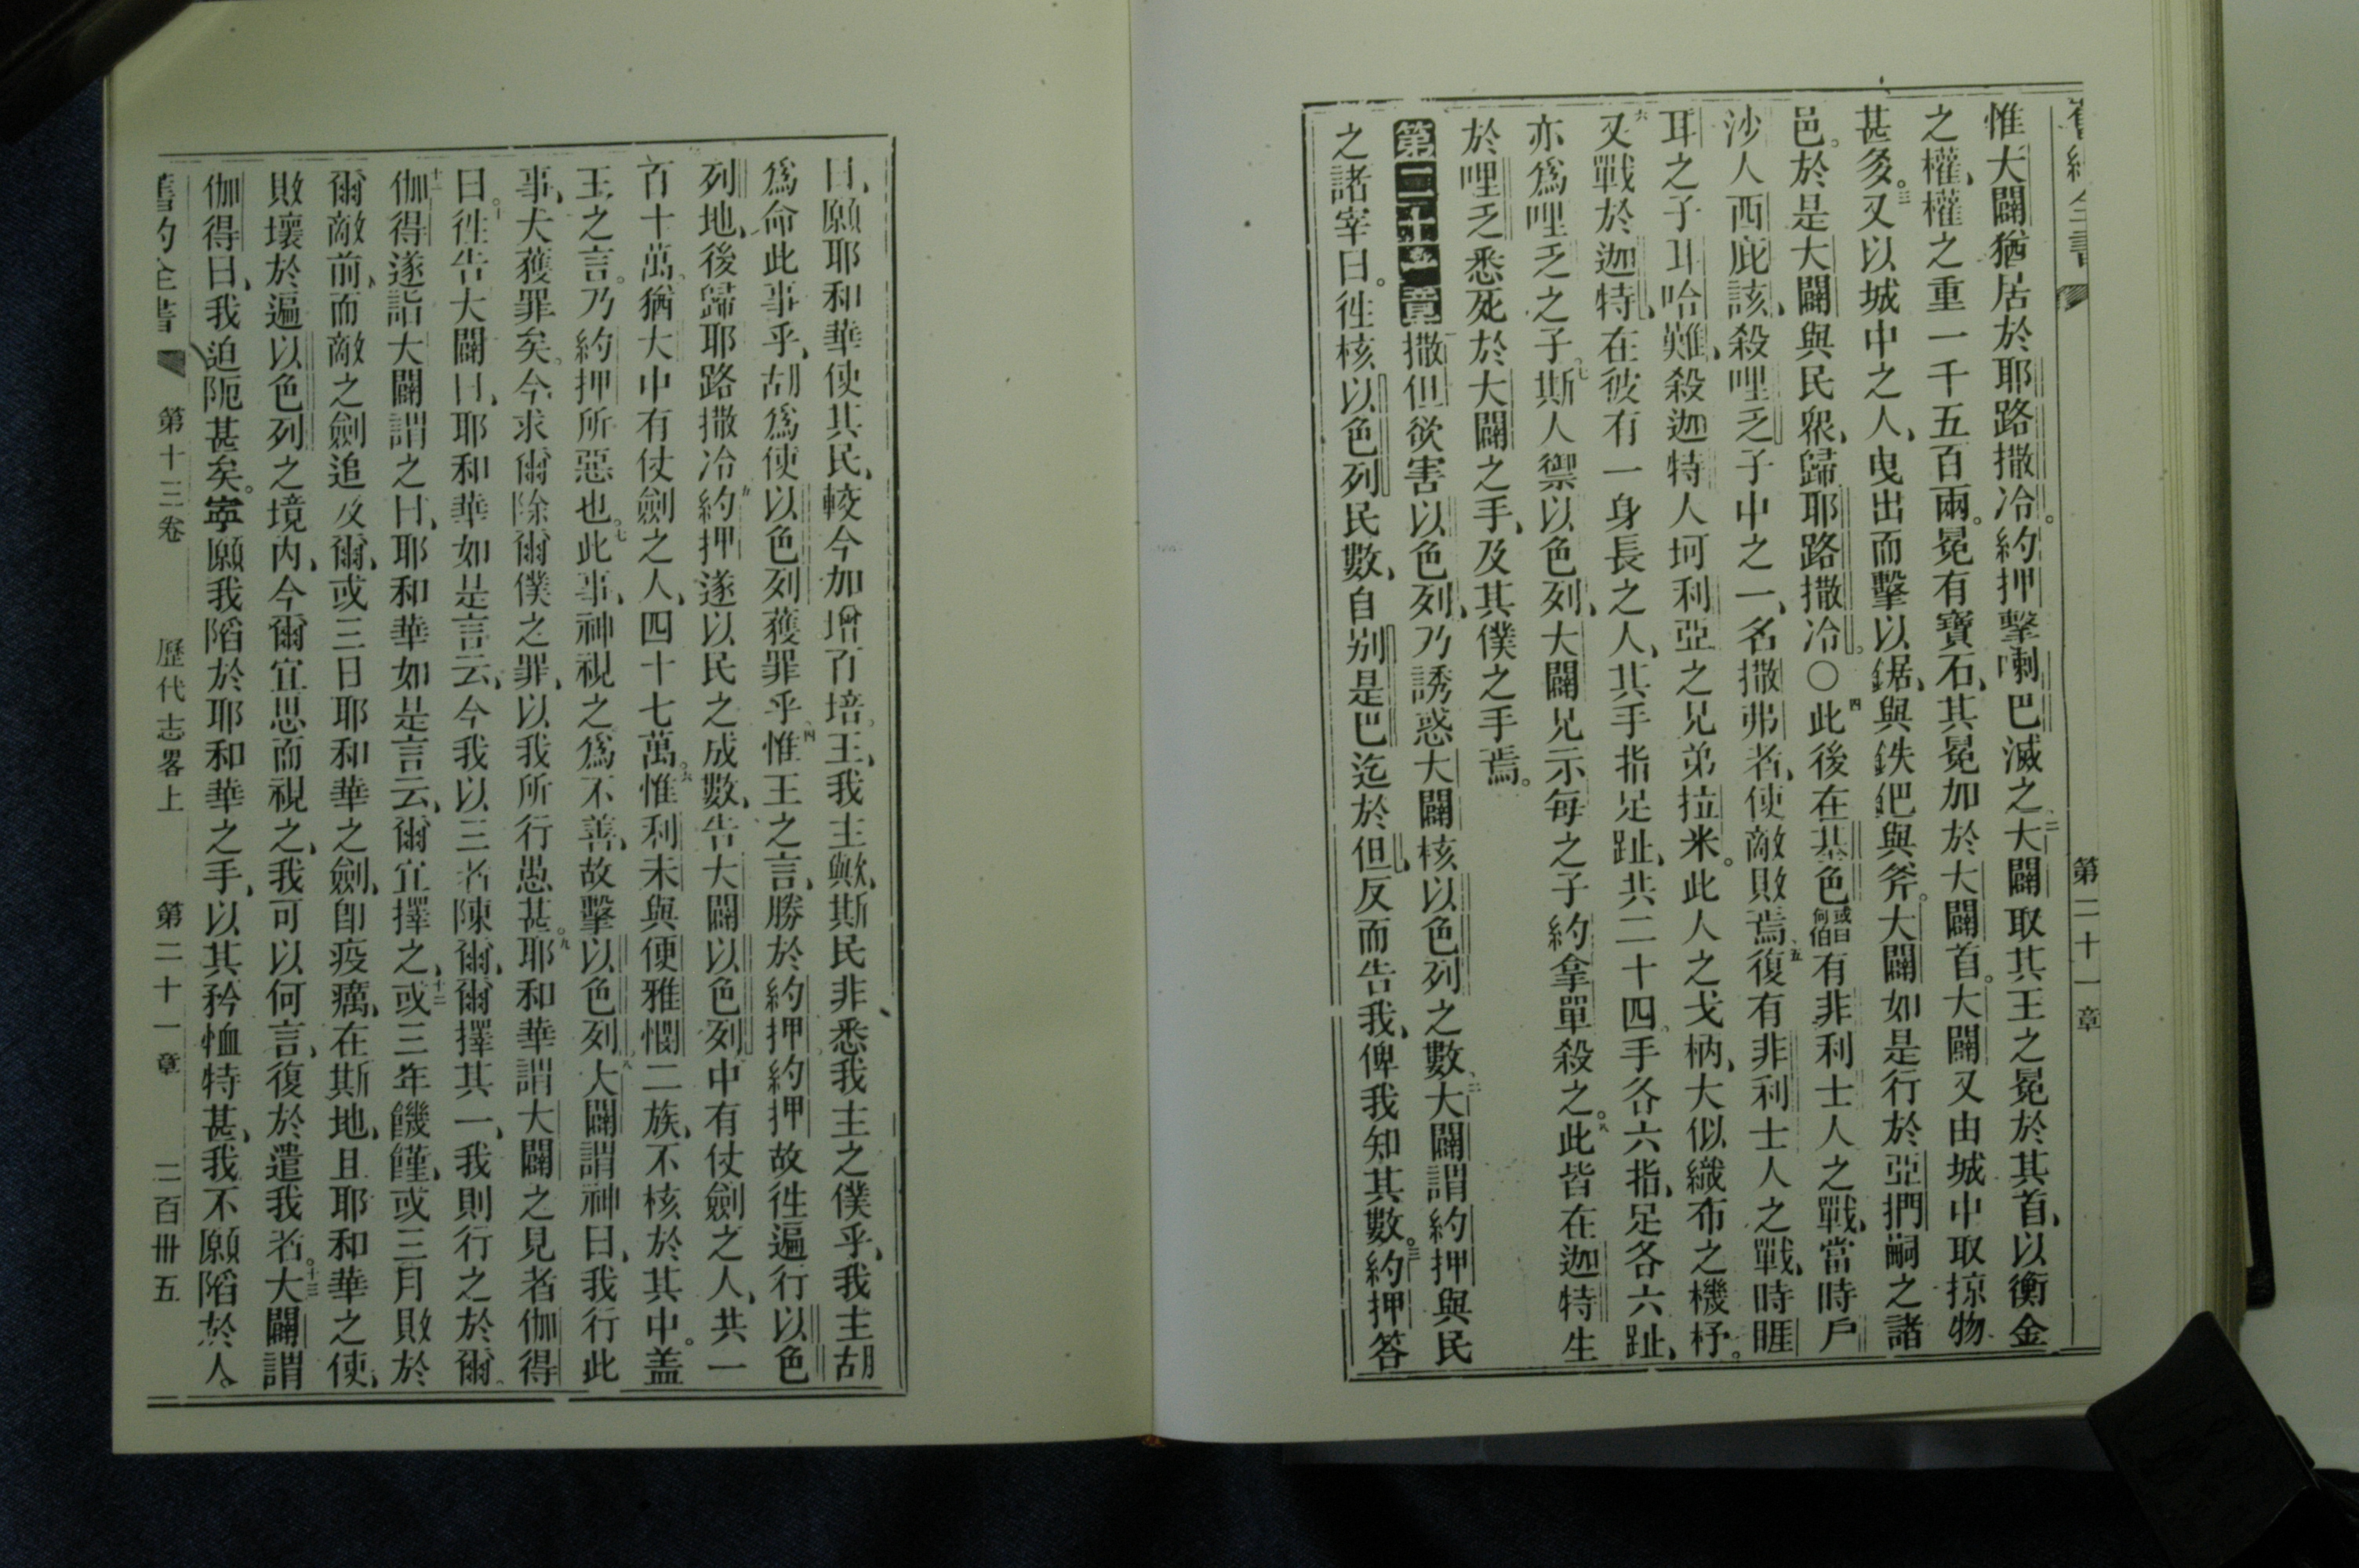 舊約全書 第二十一章
惟大闢猶居於耶路撒冷。約押擊喇巴滅之、二大闢取其王之冕於其首、以衡金
之權、權之重一千五百兩。冕有寶石、其冕加於大闢首。大闢又由城中取掠物
甚多。三又以城中之人、曳出而擊以鋸、與鉄鈀與斧。大闢如是行於亞捫嗣之諸
邑。於是大闢與民衆、歸耶路撒冷。○四此後在基色或曰何伯有非利士人之戰、當時戶
沙人西庇該、殺哩乏子中之一、名撒弗者、使敵敗焉、五復有非利士人之戰、時睚
耳之子耳哈難、殺迦特人坷利亞之兄弟拉米。此人之戈柄、大似織布之機杼。
六又戰於迦特、在彼有一身長之人、其手指足趾、共二十四、手各六指、足各六趾、
亦爲哩乏之子。七斯人禦以色列、大闢兄示每之子約拿單殺之。八此皆在迦特生
於哩乏悉死於大闢之手、及其僕之手焉。
第二十一章撒但欲害以色列、乃誘惑大闢核以色列之數、二大闢謂約押與民
之諸宰曰。徃核以色列民數、自別是巴迄於但、反而告我、俾我知其數。三約押答
曰、願耶和華使其民、較今加增百培。王、我主歟、斯民非悉我主之僕乎、我主胡
爲命此事乎、胡爲使以色列獲罪乎、四惟王之言、勝於約押、約押故徃遍行以色
列地、後歸耶路撒冷、五約押遂以民之成數、告大闢、以色列中有仗劍之人、共一
百十萬、猶大中有仗劍之人、四十七萬。六惟利未與便雅憫二族、不核於其中。盖
王之言。乃約押所惡也。七此事、神視之爲不善、故擊以色列、八大闢謂神曰、我行此
事、大獲罪矣。今求爾除爾僕之罪、以我所行愚甚。九耶和華謂大闢之見者伽得
曰。十徃告大闢曰、耶和華如是言云、今我以三者陳爾、爾擇其一、我則行之於爾。
十一伽得遂詣大闢謂之曰、耶和華如是言云、爾宜擇之、十二或三年饑饉、或三月敗於
爾敵前、而敵之劍追及爾、或三日耶和華之劍、卽疫癘、在斯地、且耶和華之使、
敗壞於遍以色列之境內、今爾宜思而視之、我可以何言、復於遣我者。十三大闢謂
伽得曰、我迫阨甚矣。寧願我陷於耶和華之手、以其矜恤特甚、我不願陷於人。
舊約全書 第十三卷 歷代志畧上 第二十一章 二百卅五